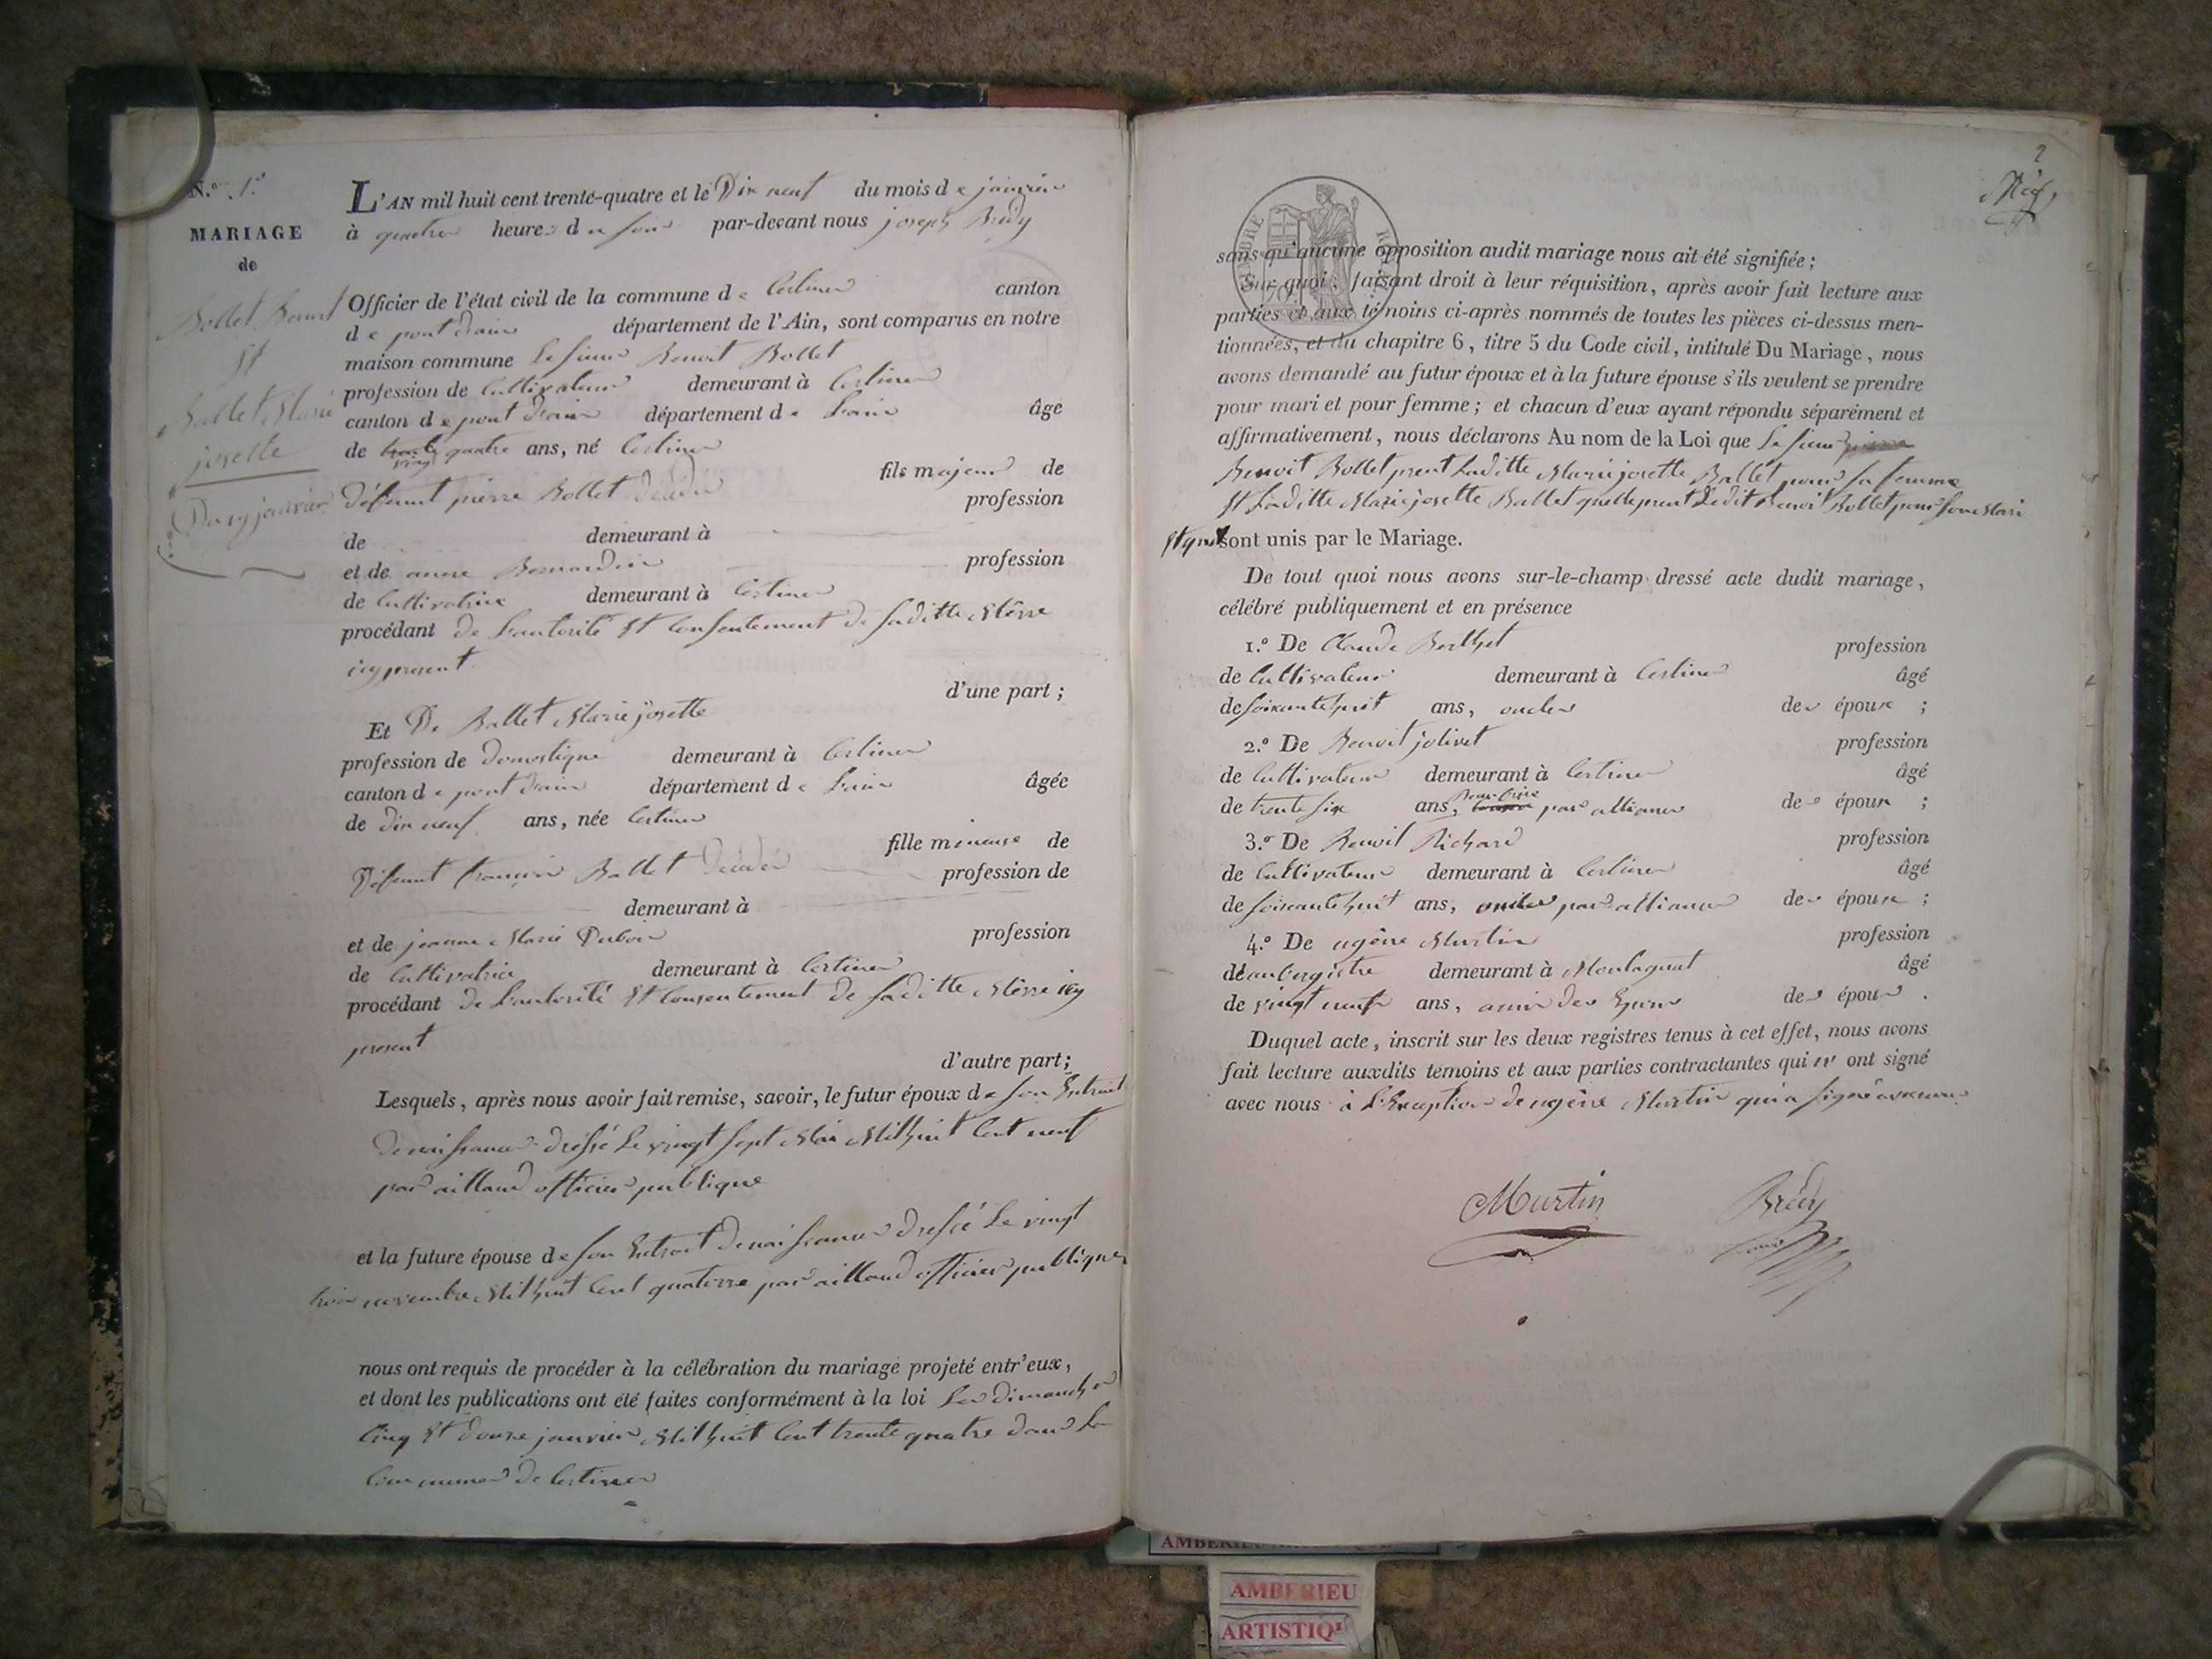 N.º 1.º
MARIAGE
de
Bollet Benoit
Et
Ballet Marie
josette
Du 19 janvier
L'AN mil huit cent trente-quatre et le Dix neuf du mois de janvier
à quatre heures du soir par-devant nous joseph Brédy
Officier de l'état civil de la commune de Certines canton
de pont d'ain département de l'Ain, sont comparus en notre
maison commune Le sieur Benoit Bollet
profession de Cultivateur demeurant à Certines
canton de pont d'ain département de L'ain âge
de vingt quatre ans, né Certines
fils majeur de
Défunt pierre Bollet Décédé profession
de demeurant à
et de anne Bernardin profession
de Cultivatrice demeurant à Certines
procédant de L'autorité Et Consentement de saditte Mêrre
icy present
d'une part ;
Et De Ballet Marie josette
profession de domestique demeurant à Certines
canton de pont d'ain département de L'ain âgée
de dix neuf ans, née Certines
fille mineure de
Défunt françois Ballet Décédé profession de
demeurant à
et de jeanne Marie Dubois profession
de Cultivatrice demeurant à Certines
procédant de L'autorité Et Consentement de saditte Mêrre icy
present
d'autre part;
Lesquels, après nous avoir fait remise, savoir, le futur époux de son Extrait
de naissance dressé Le vingt sept Mai Mil huit Cent neuf
par aillaud officier publique
et la future épouse de son Extrait de naissance dressé Le vingt
trois novembre Mil huit Cent quatorze par aillaud officier publique
nous ont requis de procéder à la célébration du mariage projeté entr'eux,
et dont les publications ont été faites conformément à la loi Les dimanches
Cinq Et douze janvier Mil huit Cent trente quatre dans La
Commune de Certines
2
sans qu'aucune opposition audit mariage nous ait été signifiée ;
Sur quoi, faisant droit à leur réquisition, après avoir fait lecture aux
parties et aux témoins ci-après nommés de toutes les pièces ci-dessus men-
tionnées, et du chapitre 6, titre 5 du Code civil, intitulé Du Mariage, nous
avons demandé au futur époux et à la future épouse s'ils veulent se prendre
pour mari et pour femme ; et chacun d'eux ayant répondu séparément et
affirmativement, nous déclarons Au nom de la Loi que Le sieur
Benoit Bollet prent Laditte Marie josette Ballet pour sa femme
Et Laditte Marie josette Ballet quelle prent Ledit Benoit Bollet pour son Mari
Et qu'ils sont unis par le Mariage.
De tout quoi nous avons sur-le-champ dressé acte dudit mariage,
célébré publiquement et en présence
1.º De Claude Berthet profession
de Cultivateur demeurant à Certines âgé
de soixante huit ans, oncle de époux ;
2.º De Benoit jolivet profession
de Cultivateur demeurant à Certines âgé
de trente six ans, Beau frère par alliance de époux ;
3.º De Benoit Richard profession
de Cultivateur demeurant à Certines âgé
de soixante huit ans, oncle par alliance de épouse ;
4.º De ugêne Martin profession
de aubergiste demeurant à Montagnat âgé
de vingt neuf ans, amis des Epoux des époux .
Duquel acte, inscrit sur les deux registres tenus à cet effet, nous avons
fait lecture auxdits temoins et aux parties contractantes qui n' ont signé
avec nous à L'Exception de ugêne Martin qui a signé avec nous
Martin Brédy
AMBERIEU
ARTISTIQ